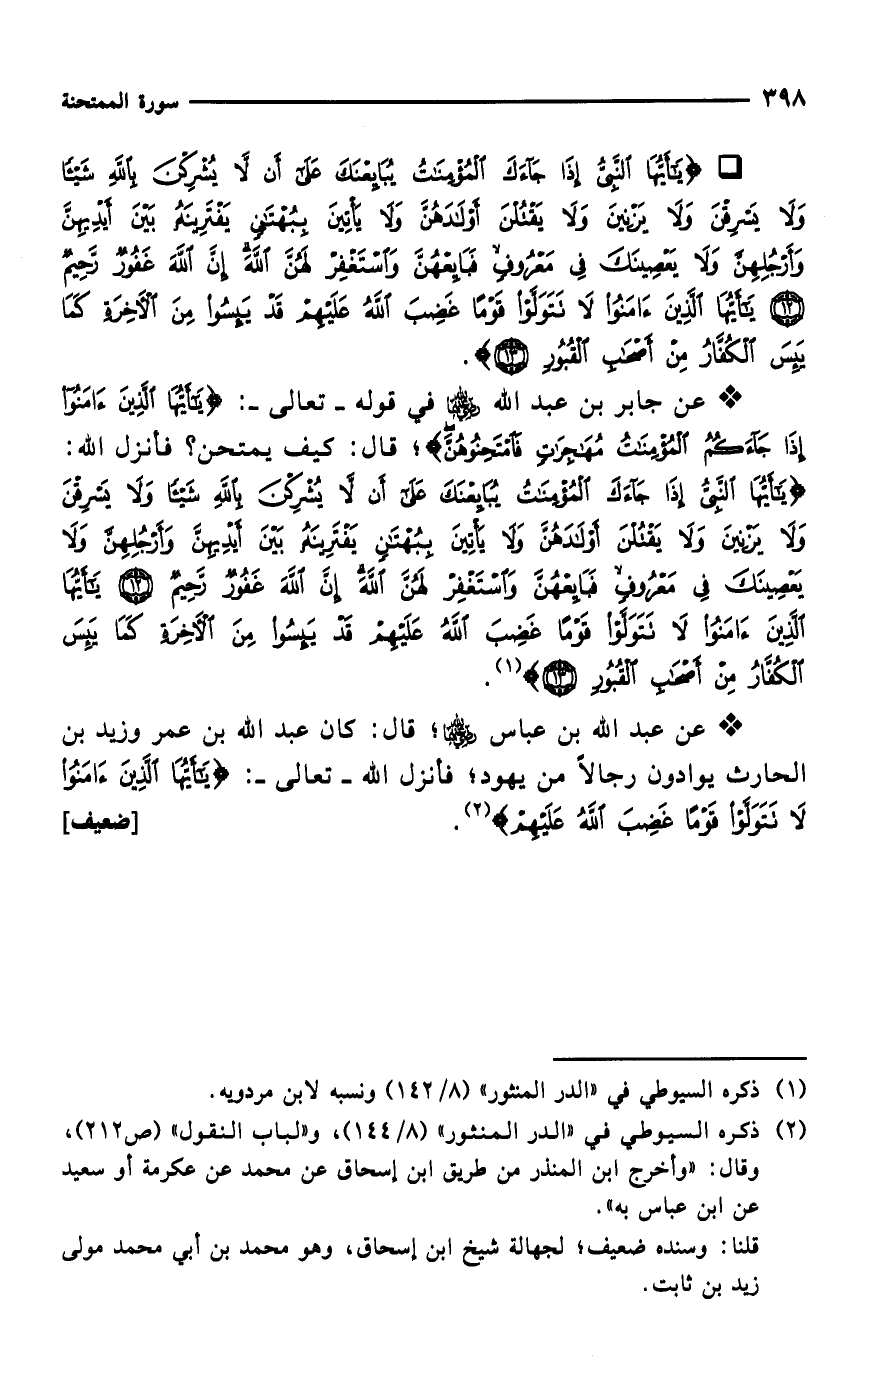 ٣٩٨ سورة الممتحنة
❑ ﴿يَٰٓأَيُّهَا ٱلنَّبِىُّ إِذَا جَآءَكَ ٱلْمُؤْمِنَٰتُ يُبَايِعْنَكَ عَلَىٰٓ أَن لَّا يُشْرِكْنَ بِٱللَّهِ شَيْـًٔا
وَلَا يَسْرِقْنَ وَلَا يَزْنِينَ وَلَا يَقْتُلْنَ أَوْلَٰدَهُنَّ وَلَا يَأْتِينَ بِبُهْتَٰنٍ يَفْتَرِينَهُۥ بَيْنَ أَيْدِيهِنَّ
وَأَرْجُلِهِنَّ وَلَا يَعْصِينَكَ فِى مَعْرُوفٍ ۙ فَبَايِعْهُنَّ وَٱسْتَغْفِرْ لَهُنَّ ٱللَّهَ ۖ إِنَّ ٱللَّهَ غَفُورٌ رَّحِيمٌ
﴿١٢﴾ يَٰٓأَيُّهَا ٱلَّذِينَ ءَامَنُوا۟ لَا تَتَوَلَّوْا۟ قَوْمًا غَضِبَ ٱللَّهُ عَلَيْهِمْ قَدْ يَئِسُوا۟ مِنَ ٱلْـَٔاخِرَةِ كَمَا
يَئِسَ ٱلْكُفَّارُ مِنْ أَصْحَٰبِ ٱلْقُبُورِ ﴿١٣﴾﴾.
❖ عن جابر بن عبد الله رضي الله عنه في قوله ـ تعالى ـ: ﴿يَٰٓأَيُّهَا ٱلَّذِينَ ءَامَنُوٓا۟
إِذَا جَآءَكُمُ ٱلْمُؤْمِنَٰتُ مُهَٰجِرَٰتٍ فَٱمْتَحِنُوهُنَّ ۖ﴾؛ قال: كيف يمتحن؟ فأنزل الله:
﴿يَٰٓأَيُّهَا ٱلنَّبِىُّ إِذَا جَآءَكَ ٱلْمُؤْمِنَٰتُ يُبَايِعْنَكَ عَلَىٰٓ أَن لَّا يُشْرِكْنَ بِٱللَّهِ شَيْـًٔا وَلَا يَسْرِقْنَ
وَلَا يَزْنِينَ وَلَا يَقْتُلْنَ أَوْلَٰدَهُنَّ وَلَا يَأْتِينَ بِبُهْتَٰنٍ يَفْتَرِينَهُۥ بَيْنَ أَيْدِيهِنَّ وَأَرْجُلِهِنَّ وَلَا
يَعْصِينَكَ فِى مَعْرُوفٍ ۙ فَبَايِعْهُنَّ وَٱسْتَغْفِرْ لَهُنَّ ٱللَّهَ ۖ إِنَّ ٱللَّهَ غَفُورٌ رَّحِيمٌ ﴿١٢﴾ يَٰٓأَيُّهَا
ٱلَّذِينَ ءَامَنُوا۟ لَا تَتَوَلَّوْا۟ قَوْمًا غَضِبَ ٱللَّهُ عَلَيْهِمْ قَدْ يَئِسُوا۟ مِنَ ٱلْـَٔاخِرَةِ كَمَا يَئِسَ
ٱلْكُفَّارُ مِنْ أَصْحَٰبِ ٱلْقُبُورِ ﴿١٣﴾﴾(١).
❖ عن عبد الله بن عباس رضي الله عنهما؛ قال: كان عبد الله بن عمر وزيد بن
الحارث يوادون رجالاً من يهود؛ فأنزل الله ـ تعالى ـ: ﴿يَٰٓأَيُّهَا ٱلَّذِينَ ءَامَنُوا۟
لَا تَتَوَلَّوْا۟ قَوْمًا غَضِبَ ٱللَّهُ عَلَيْهِمْ﴾(٢). [ضعيف]
(١) ذكره السيوطي في «الدر المنثور» (١٤٢/٨) ونسبه لابن مردويه.
(٢) ذكره السيوطي في «الدر المنثور» (١٤٤/٨)، و«لباب النقول» (ص٢١٢)،
وقال: «وأخرج ابن المنذر من طريق ابن إسحاق عن محمد عن عكرمة أو سعيد
عن ابن عباس به».
قلنا: وسنده ضعيف؛ لجهالة شيخ ابن إسحاق، وهو محمد بن أبي محمد مولى
زيد بن ثابت.